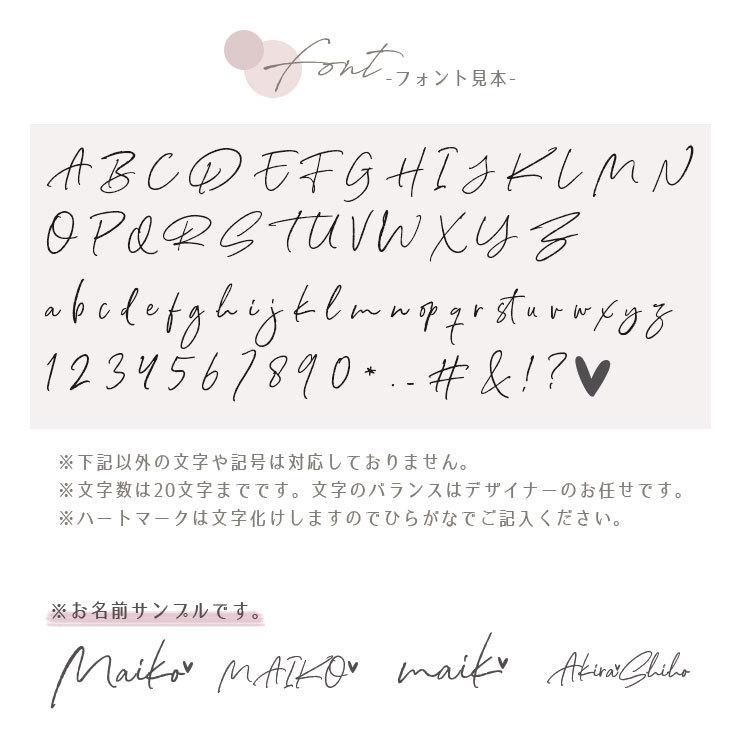 font -フォント見本-
A B C D E F G H I J K L M N
O P Q R S T U V W X Y Z
a b c d e f g h i j k l m n o p q r s t u v w x y z
1 2 3 4 5 6 7 8 9 0 * . . - # & ! ? ♥
※下記以外の文字や記号は対応しておりません。
※文字数は20文字までです。文字のバランスはデザイナーのお任せです。
※ハートマークは文字化けしますのでひらがなでご記入ください。
※お名前サンプルです。
Maiko♥ MAIKO♥ maik♥ Akira♥Shiho